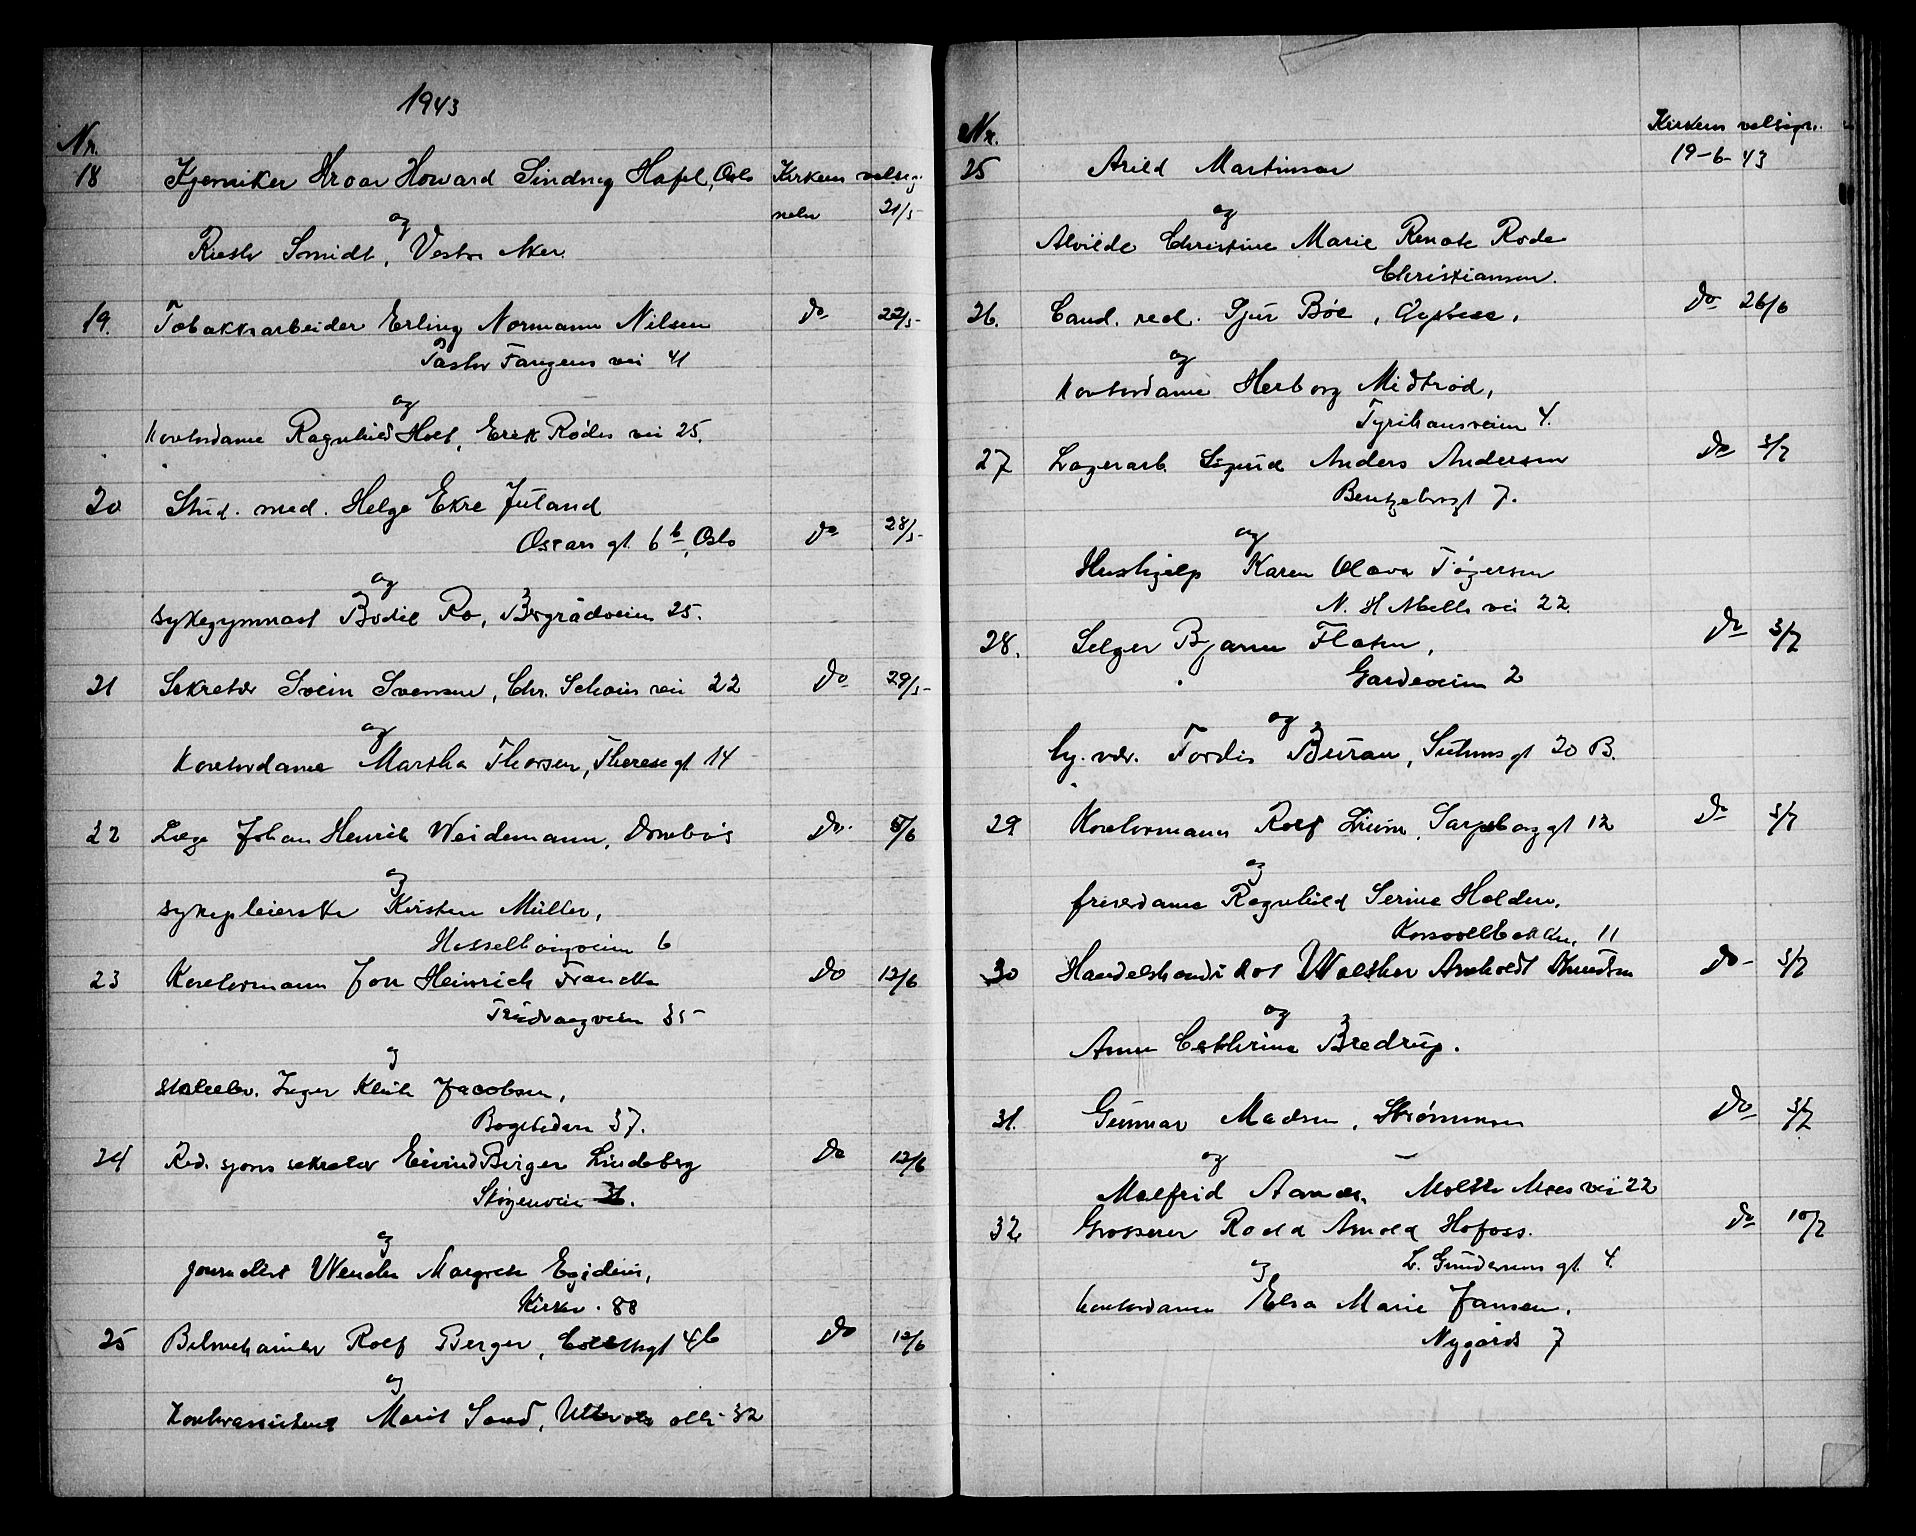 1943
Nr.
18 Kjemiker Hroar Howard Sindney Hafel, Oslo Kirkens velsig-
nelse 21/5
og
Smidt, Vestre Aker.
19. Tobakkarbeider Erling Normann Nilsen do 22/5
Pastor Fangens vei 41
og
Kontordame Ragnhild Holt, Erik Rødes vei 25.
20 Stud. med. Helge Ekre Jutand
Oscars gt. 6b, Oslo do 28/5
og
sykegymnast Bodil Ro, Bergrådveien 25.
21 Sekretær Svein Svensen, Chr. Schous vei 22 do 29/5
og
Kontordame Martha Thorsen, Theresegt 14
22 Læge Johan Henrik Weidemann, Dombås do. 5/6
og
sykepleierske Kirsten Müller,
Hosselhaugveien 6
23 Kontormann Jon Heinrich Francke do 12/6
35
og
Inger Jacobsen,
37.
24 Red. sjons sekretær Eivind Birger Lindeberg do 12/6
og
journalist Wenche Margrete Egidius,
Kirkev. 88
25 Rolf Berger, 46 do 12/6
og
Kontorassistent Marit Sand, Ullevåls allé 32
Nr. Kirkens velsign.
25 Arild Martinsen 19-6-43
og
Alvilde Christine Marie Renate Rode
Christiansen.
26. Cand. real. Gjur Bøe, Øystese. do 26/6
og
Kontordame Herborg Midtrød,
Tyrihansveien 4.
27 Lagerarb. Sigurd Anders Andersen do 3/7
Bentzebrogt 7.
og
Hushjelp Karen Olava Tøgersen
vei 22
28. Selger Bjarne Flaten, do 3/7
Gardeveien 2
og
Tordis Buran, Suhmsgt 20 B.
29 Kontormann Rolf Lium, Sarpsborggt 12 do 3/7
og
frisørdame Ragnhild Serine Holden.
Korsvollbakken. 11
30 Handelskandidat Walther Arnholdt Knudsen do 3/7
og
Anne Cathrine Bredrup.
31. Gunnar Madsen, Strømmen do 3/7
og
Malfrid Aanæs, Moltke Moes vei 22
32 Grosserer Arnold Hofoss. do 10/7
L. Gundersens gt. 4.
og
Kontordame Elsa Marie Jansen,
Nygårds 7